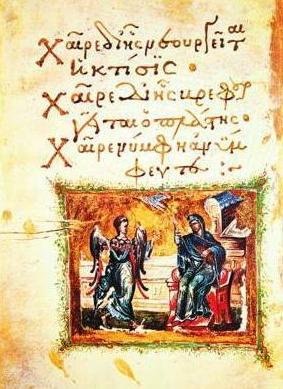 Χαῖρε δι ἧς νεουργεῖται
ἡ κτίσις·
Χαῖρε δι ἧς βρεφουρ
γεῖται ὁ
Χαῖρε νύμφη ἀνύμ
φευτε :